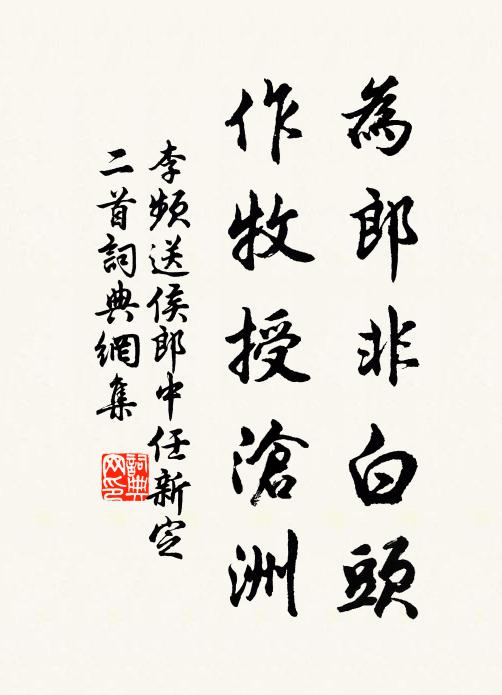 為郎非白頭
作牧授滄洲
李頻送侯郎中任新定
二首詞典網集
詞典網印